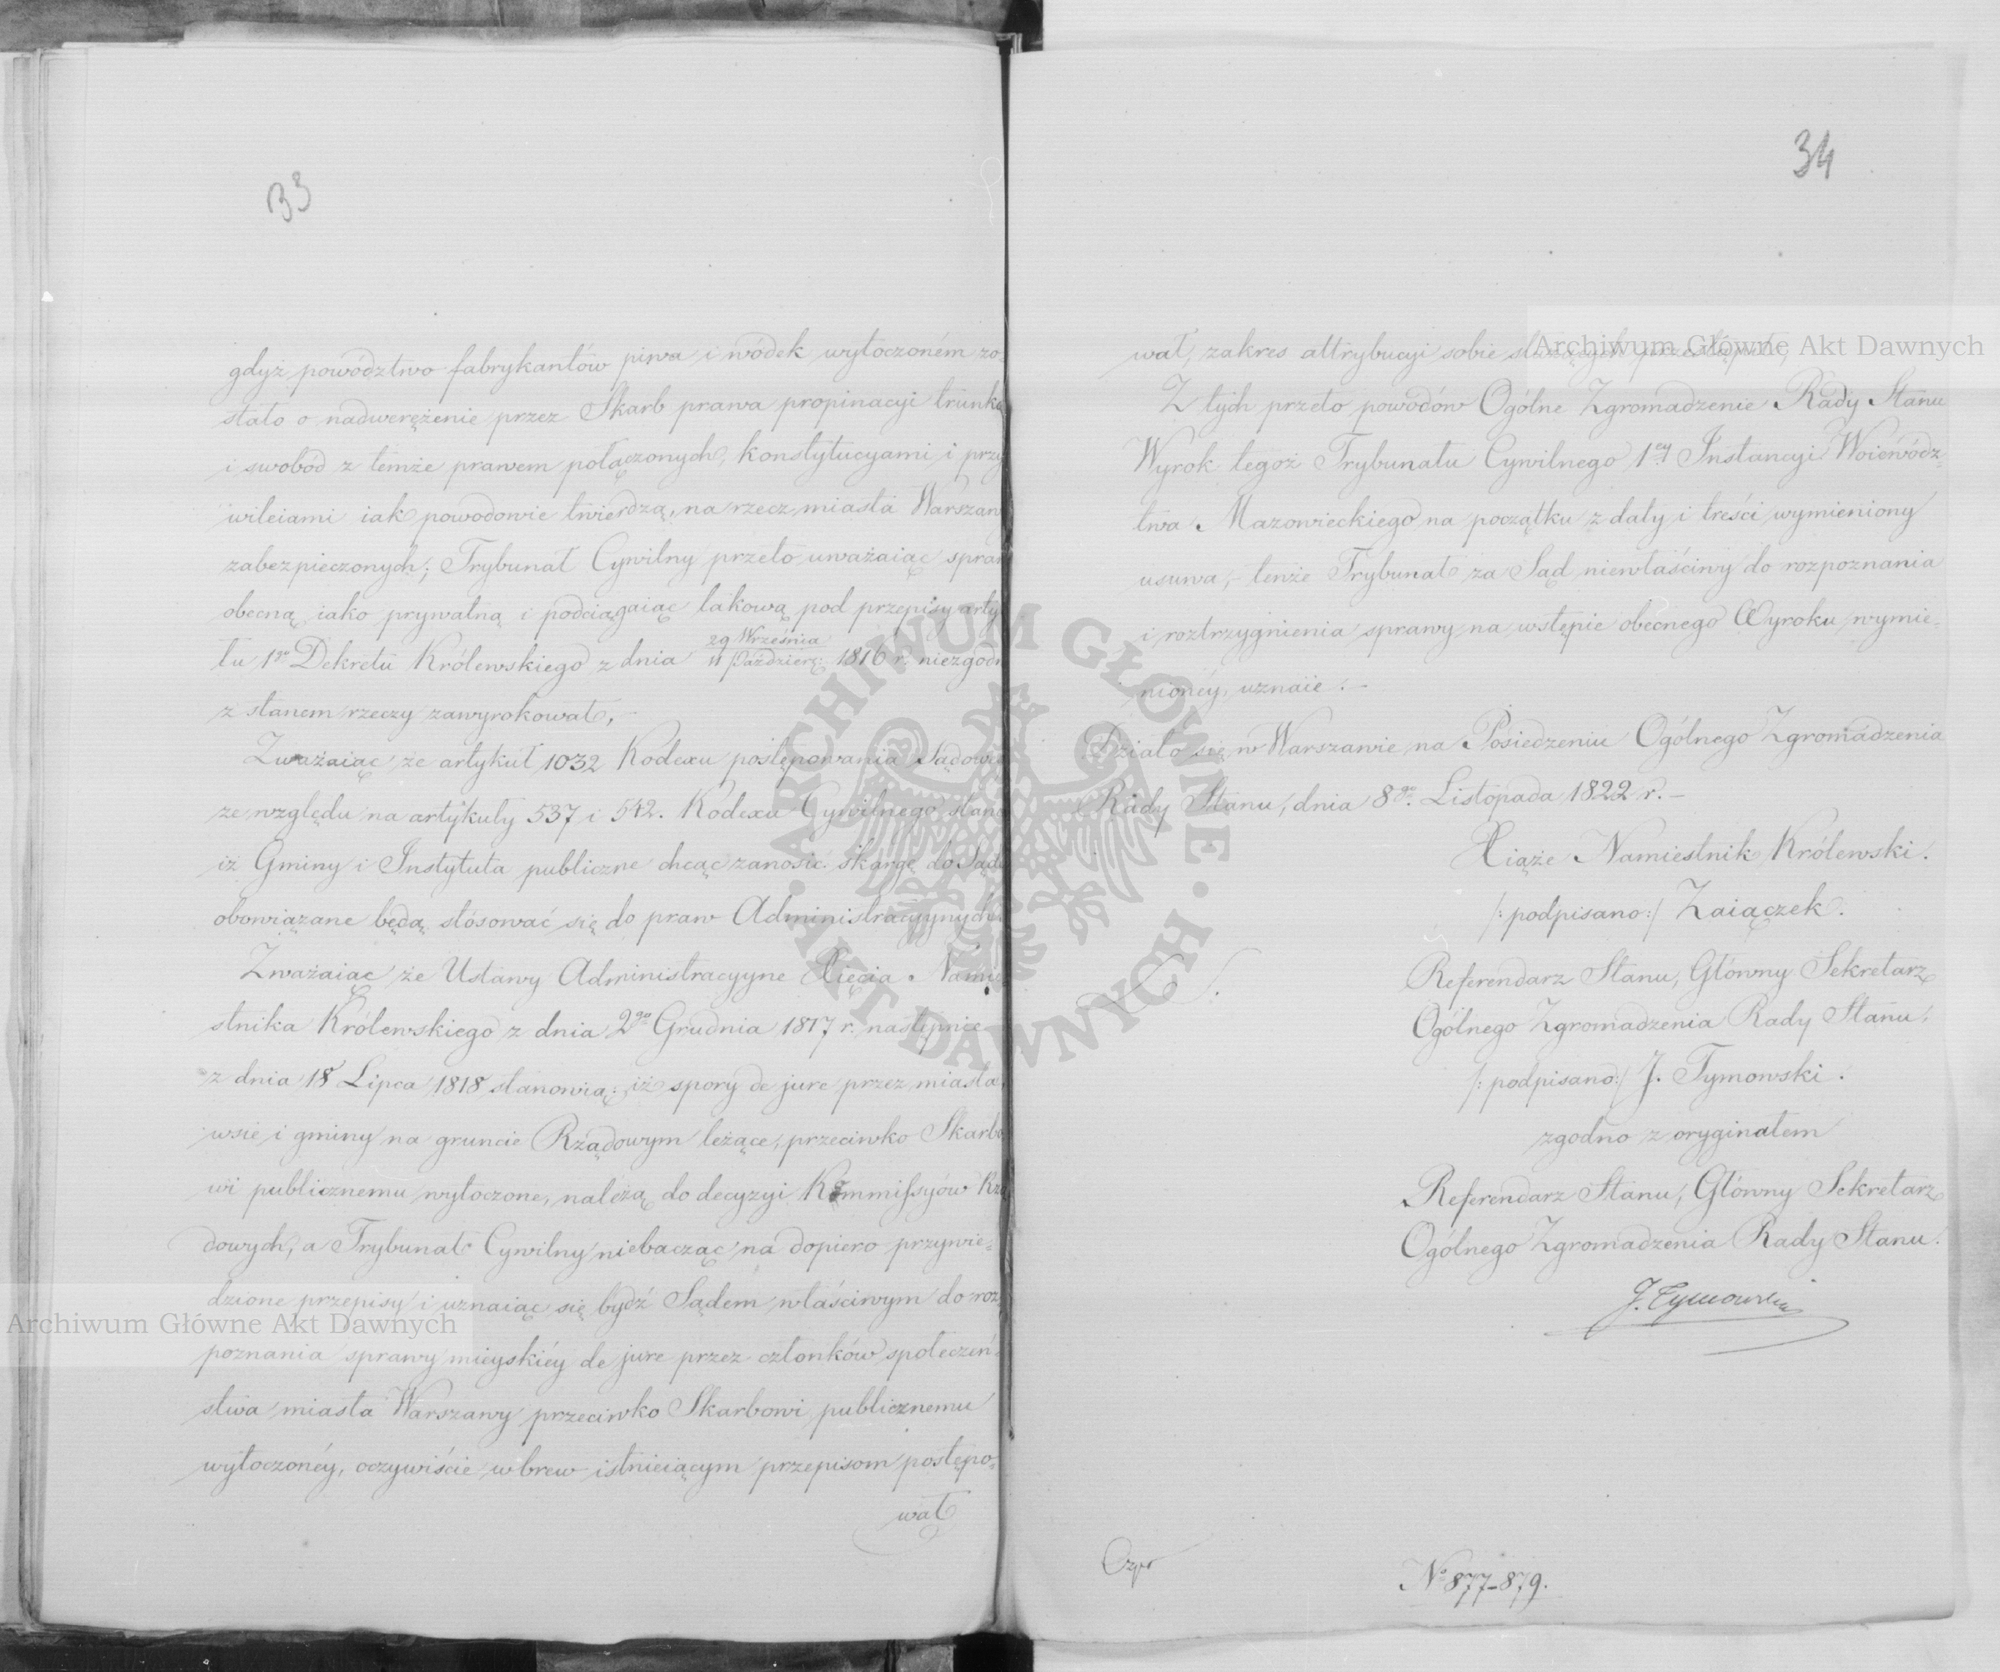 33
gdyż powództwo fabrykantów piwa i wódek wytoczoném zo-
stało o nadwerężenie przez Skarb prawa propinacyi trunkó
i swobód z temże prawem połączonych, konstytucyami i przy
wileiami iak powodowie twierdzą, na rzecz miasta Warszaw
zabezpieczonych; Trybunał Cywilny przeto uważaiąc spraw
obecną iako prywatną i podciągaiąc takową pod przepisy arty
łu 1go Dekretu Królewskiego z dnia 29 Września / 11 Paździer: 1816 r. niezgodn
z stanem rzeczy zawyrokował, –
Zważaiąc że artykuł 1032 Kodexu postępowania Sądowe
ze względu na artykuły 537 i 542. Kodexu Cywilnego stano
iż Gminy i Instytuta publiczne chcąc zanosić skargę do Sądu
obowiązane będą stósować się do praw Administracyynych.
Zważaiąc że Ustawy Administracyyne Xięcia Namie
stnika Królewskiego z dnia 2go Grudnia 1817 r. następnie
z dnia 18 Lipca 1818 stanowią: iż spory de jure przez miasta
wsie i gminy na gruncie Rządowym leżące, przeciwko Skarbo
wi publicznemu wytoczone, należą do decyzyi Kommissyów Rzą
dowych, a Trybunał Cywilny niebacząc na dopiero przywie-
dzione przepisy i uznaiąc się bydź Sądem właściwym do roz-
poznania sprawy mieyskiéy de jure przez członków społeczeń-
stwa miasta Warszawy przeciwko Skarbowi publicznemu
wytoczonéy, oczywiście wbrew istnieiącym przepisom postępo-
wał
34
wał, zakres attrybucyi sobie służących przestąpił,
Z tych przeto powodów Ogólne Zgromadzenie Rady Stanu
Wyrok tegoż Trybunału Cywilnego 1ey Instancyi Woiewódz-
twa Mazowieckiego na początku z daty i treści wymieniony
usuwa, – tenże Trybunał za Sąd niewłaściwy do rozpoznania
i roztrzygnienia sprawy na wstępie obecnego Wyroku wymie-
nionéy, uznaie: –
Działo się w Warszawie na Posiedzeniu Ogólnego Zgromadzenia
Rady Stanu, dnia 8go. Listopada 1822 r. –
Xiąże Namiestnik Królewski.
/:podpisano:/ Zaiączek.
L S.
Referendarz Stanu, Główny Sekretarz
Ogólnego Zgromadzenia Rady Stanu.
/:podpisano:/ J. Tymowski.
zgodno z oryginałem
Referendarz Stanu, Główny Sekretarz
Ogólnego Zgromadzenia Rady Stanu.
J. Tymowski
No 877-879.
Archiwum Główne Akt Dawnych
Archiwum Główne Akt Dawnych
ARCHIWUM GŁÓWNE · AKT DAWNYCH ·